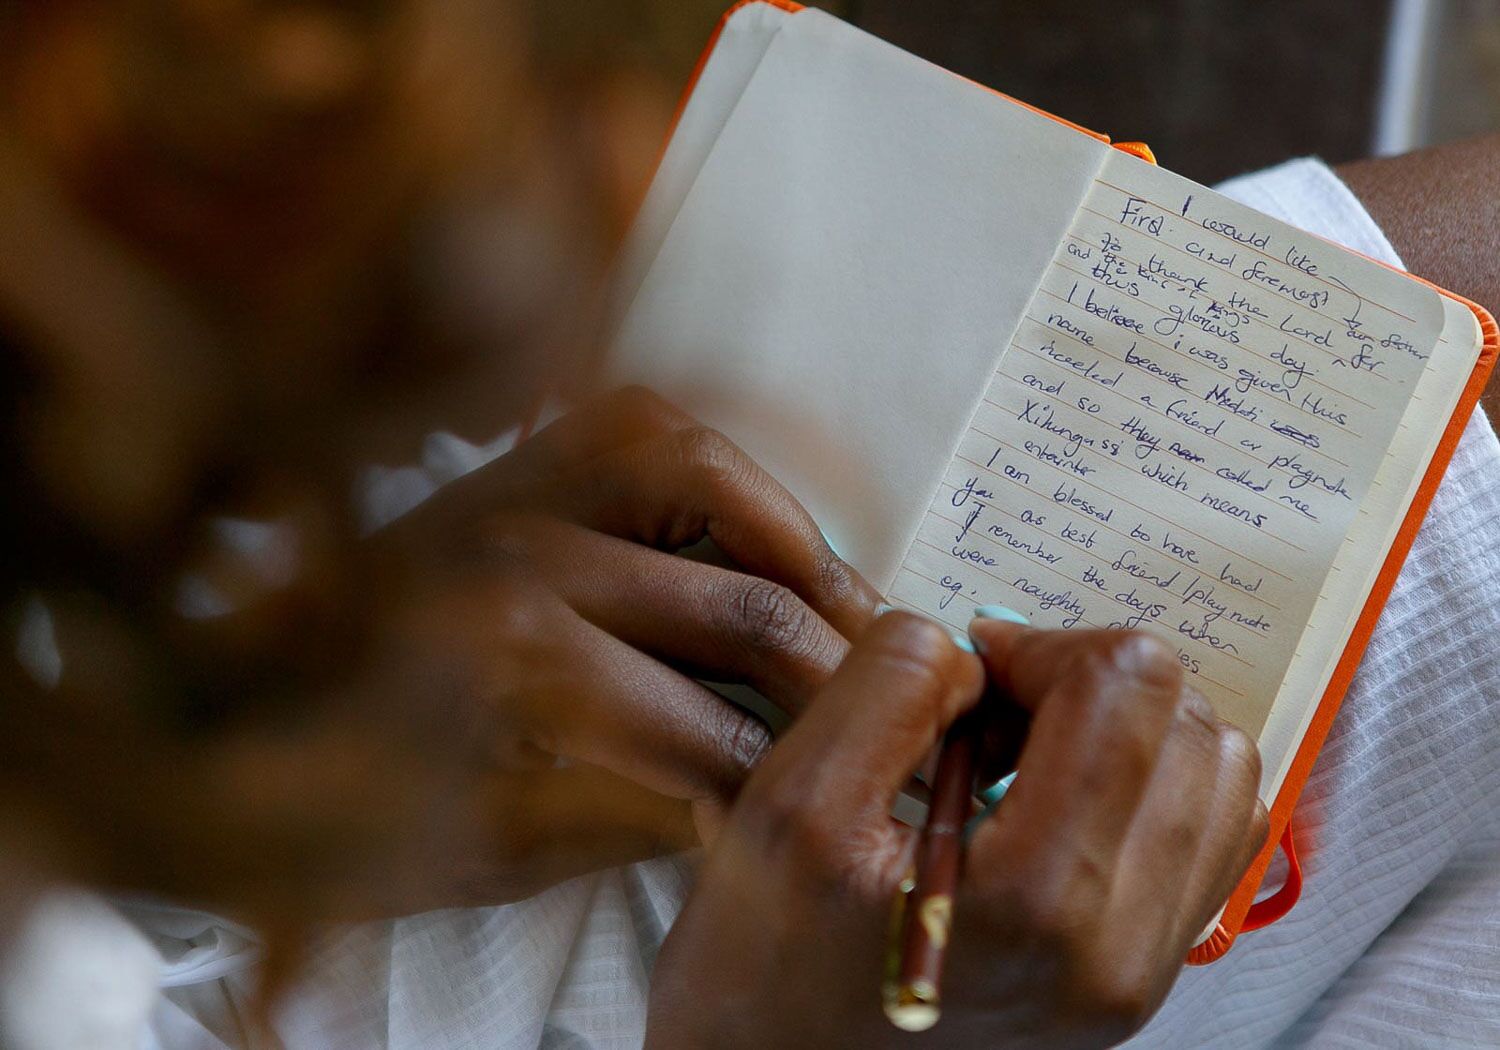 I would like
First and foremost our father
to thank the Lord for
and the King of Kings
this glorious day.
I believe i was given this
name because
needed a friend or playmate
and so they called me
Xihlungassi which means
entainter
I am blessed to have had
you as best friend / playmate
I remember the days when
were naughty
eg.